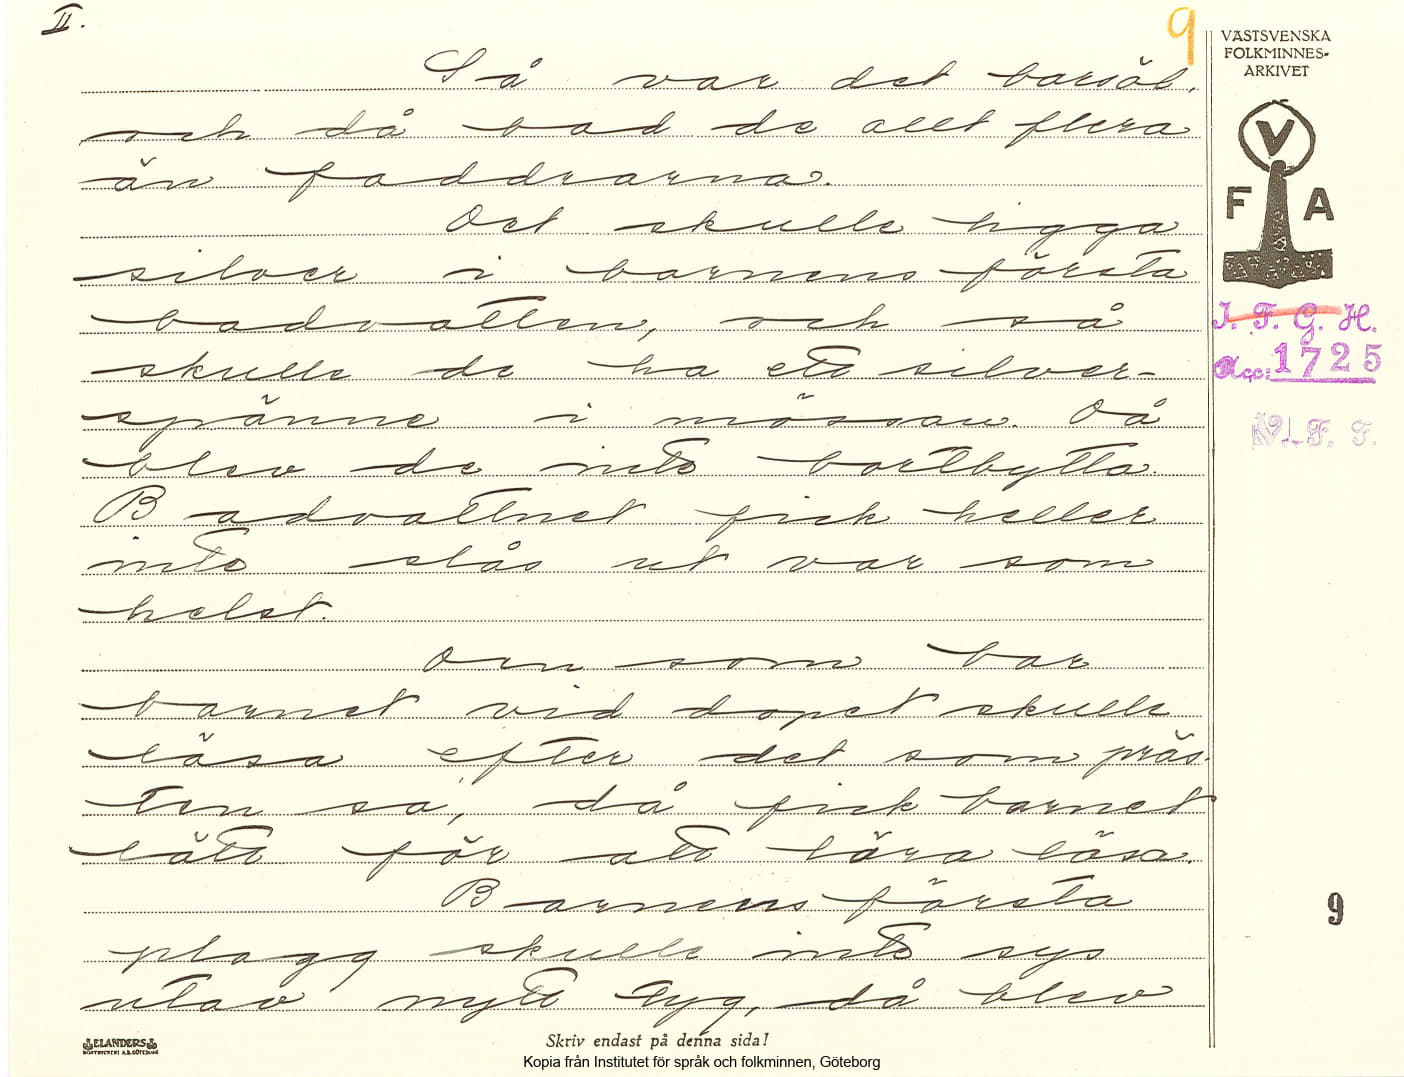 II.
9
VÄSTSVENSKA
FOLKMINNES-
ARKIVET
Så var det barsöl,
och då bad de allt flera
än faddrarna.
V
F A
Det skulle ligga
silver i barnens första
badvatten, och så
I. F. G. H.
skulle de ha ett silver-
Acc: 1725
spänne i mössan. Då
V. F. F.
blev de inte bortbytta.
Badvattnet fick heller
inte slås ut var som
helst.
Den som bar
barnet vid dopet skulle
läsa efter det som präs-
ten sa, då fick barnet
lätt för att lära läsa.
Barnens första
9
plagg skulle inte sys
utav nytt tyg, då blev
ELANDERS
BOKTRYCKERI A.B. GÖTEBORG
Skriv endast på denna sida!
Kopia från Institutet för språk och folkminnen, Göteborg